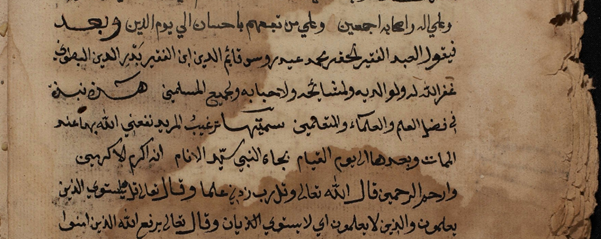 وعلي اله واصحابه اجمعين وعلي من تبعهم باحسان الي يوم الدين وبعد
فيقول العبد الفقير الحقير محمد عيدروس قائم الدين ابن الفقير بدر الدين
غفر الله له ولوالديه ولمشائخه ولاحبابه ولجميع المسلمين هذه نبذة
في فضل العلم والعلماء والمتعلمين سميتها ترغيب المريد نفعني الله بها عند
الممات وبعدها الي يوم القيام بجاه النبي سيد الانام انه اكرم الاكرمين
وارحم الرحمين قال الله تعالي وقل رب زدني علما وقال تعالي قل هل يستوي الذين
يعلمون والذين لا يعلمون اي لا يستوي الفريقان وقال تعالي يرفع الله الذين امنوا